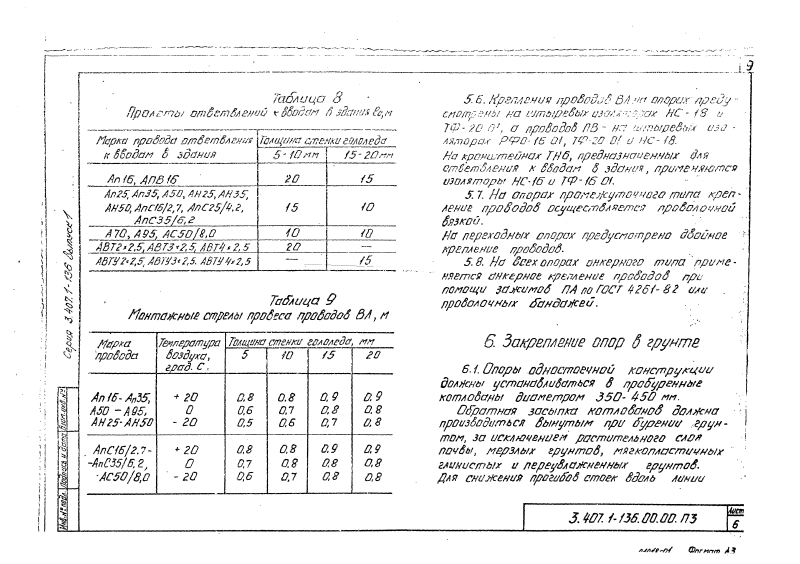 9
Таблица 8
Пролеты ответвлений к вводам в здания ℓо, м
Марка провода ответвления к вводам в здания | Толщина стенки гололеда
5-10 мм | 15-20 мм
Ап 16, АПВ 16 | 20 | 15
Ап25, Ап35, А50, АН25, АН35,
АН50, АпС16/2,7, АпС25/4,2, | 15 | 10
АпС35/6,2
А70, А95, АС50/8,0 | 10 | 10
АВТ2×2,5, АВТ3×2,5, АВТ4×2,5 | 20 | —
АВТУ2×2,5, АВТУ3×2,5, АВТУ4×2,5 | — | 15
Таблица 9
Монтажные стрелы провеса проводов ВЛ, м
Марка провода | Температура воздуха, град. С. | Толщина стенки гололеда, мм
5 | 10 | 15 | 20
Ап 16 - Ап35, | +20 | 0,8 | 0,8 | 0,9 | 0,9
А50 – А95, | 0 | 0,6 | 0,7 | 0,8 | 0,8
АН25 - АН50 | -20 | 0,5 | 0,6 | 0,7 | 0,8
АпС16/2.7- | +20 | 0,8 | 0,8 | 0,9 | 0,9
-АпС35/6,2, | 0 | 0,7 | 0,8 | 0,8 | 0,8
АС50/8,0 | -20 | 0,6 | 0,7 | 0,8 | 0,8
5.6. Крепления проводов ВЛ на опорах преду-
смотрены на штыревых изоляторах НС-18 и
ТФ-20 01, а проводов ПВ - на штыревых изо-
ляторах РФО-16 01, ТФ-20 01 и НС-18.
На кронштейнах ТН6, предназначенных для
ответвления к вводам в здания, применяются
изоляторы НС-16 и ТФ-16 01.
5.7. На опорах промежуточного типа креп-
ление проводов осуществляется проволочной
вязкой.
На переходных опорах предусмотрено двойное
крепление проводов.
5.8. На всех опорах анкерного типа приме-
няется анкерное крепление проводов при
помощи зажимов ПА по ГОСТ 4261-82 или
проволочных бандажей.
6. Закрепление опор в грунте
6.1. Опоры одностоечной конструкции
должны устанавливаться в пробуренные
котлованы диаметром 350-450 мм.
Обратная засыпка котлованов должна
производиться вынутым при бурении грун-
том, за исключением растительного слоя
почвы, мерзлых грунтов, мягкопластичных
глинистых и переувлажненных грунтов.
Для снижения прогибов стоек вдоль линии
Серия 3.407.1-136 Выпуск 1
Инв. № подл. Подпись и дата Взам. инв. №
3.407.1-136.00.00.ПЗ
Лист
6
Формат А3